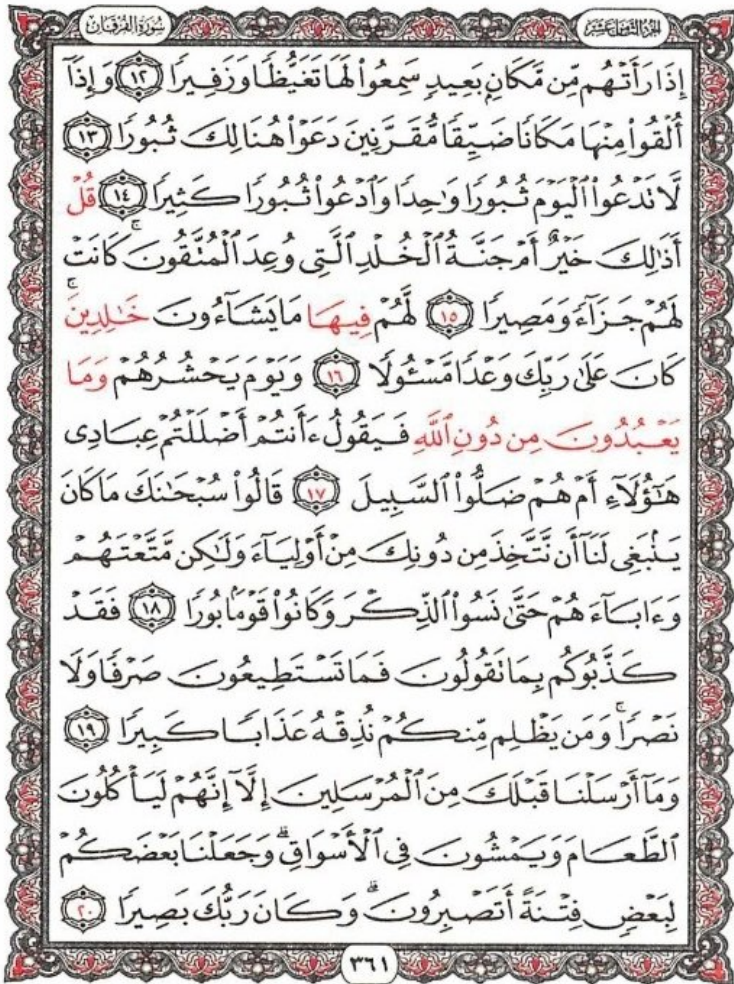 سُورَةُ الفُرْقَان
الجُزءُ الثَّامِنَ عَشَرَ
إِذَا رَأَتْهُم مِّن مَّكَانٍۭ بَعِيدٍ سَمِعُوا۟ لَهَا تَغَيُّظًا وَزَفِيرًا ۝١٢ وَإِذَآ
أُلْقُوا۟ مِنْهَا مَكَانًا ضَيِّقًا مُّقَرَّنِينَ دَعَوْا۟ هُنَالِكَ ثُبُورًا ۝١٣
لَّا تَدْعُوا۟ ٱلْيَوْمَ ثُبُورًا وَٰحِدًا وَٱدْعُوا۟ ثُبُورًا كَثِيرًا ۝١٤ قُلْ
أَذَٰلِكَ خَيْرٌ أَمْ جَنَّةُ ٱلْخُلْدِ ٱلَّتِى وُعِدَ ٱلْمُتَّقُونَ ۚ كَانَتْ
لَهُمْ جَزَآءً وَمَصِيرًا ۝١٥ لَّهُمْ فِيهَا مَا يَشَآءُونَ خَٰلِدِينَ ۚ
كَانَ عَلَىٰ رَبِّكَ وَعْدًا مَّسْـُٔولًا ۝١٦ وَيَوْمَ يَحْشُرُهُمْ وَمَا
يَعْبُدُونَ مِن دُونِ ٱللَّهِ فَيَقُولُ ءَأَنتُمْ أَضْلَلْتُمْ عِبَادِى
هَٰٓؤُلَآءِ أَمْ هُمْ ضَلُّوا۟ ٱلسَّبِيلَ ۝١٧ قَالُوا۟ سُبْحَٰنَكَ مَا كَانَ
يَنۢبَغِى لَنَآ أَن نَّتَّخِذَ مِن دُونِكَ مِنْ أَوْلِيَآءَ وَلَٰكِن مَّتَّعْتَهُمْ
وَءَابَآءَهُمْ حَتَّىٰ نَسُوا۟ ٱلذِّكْرَ وَكَانُوا۟ قَوْمًۢا بُورًا ۝١٨ فَقَدْ
كَذَّبُوكُم بِمَا تَقُولُونَ فَمَا تَسْتَطِيعُونَ صَرْفًا وَلَا
نَصْرًا ۚ وَمَن يَظْلِم مِّنكُمْ نُذِقْهُ عَذَابًا كَبِيرًا ۝١٩
وَمَآ أَرْسَلْنَا قَبْلَكَ مِنَ ٱلْمُرْسَلِينَ إِلَّآ إِنَّهُمْ لَيَأْكُلُونَ
ٱلطَّعَامَ وَيَمْشُونَ فِى ٱلْأَسْوَاقِ ۗ وَجَعَلْنَا بَعْضَكُمْ
لِبَعْضٍ فِتْنَةً أَتَصْبِرُونَ ۗ وَكَانَ رَبُّكَ بَصِيرًا ۝٢٠
٣٦١